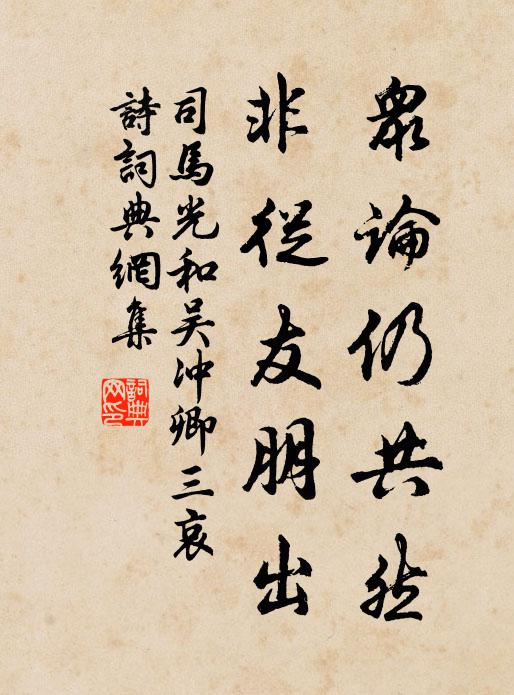 眾論仍共然
非從友朋出
司馬光和吴冲卿三哀
詩詞典網集
詞典網印